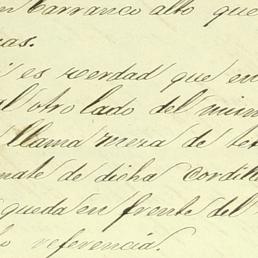 barranco alto que
es verdad que en
otro lado del mism
llama mesa de te
mate de dicha Cordill
queda en frente del
referencia.